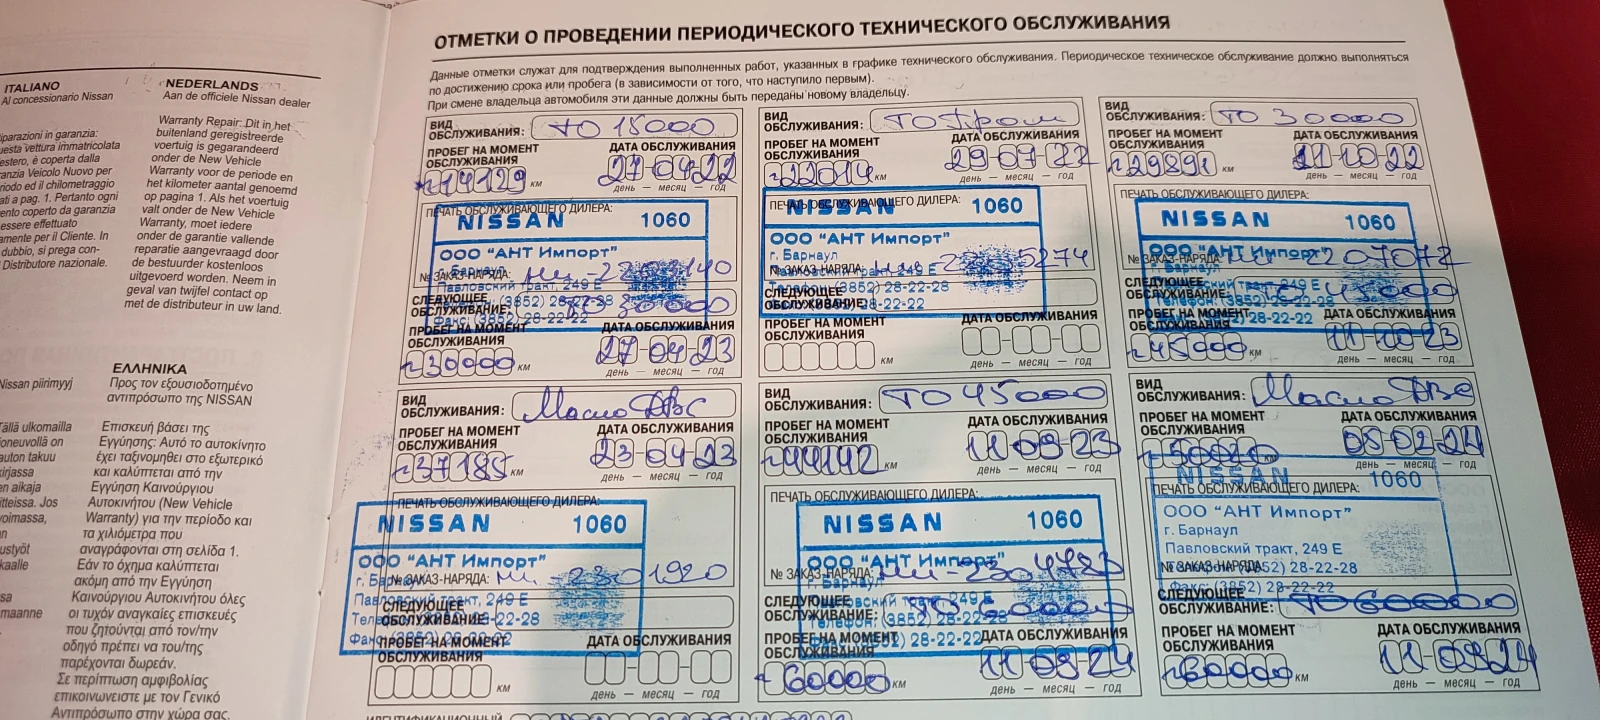 ITALIANO
Al concessionario Nissan
riparazioni in garanzia:
uesta vettura immatricolata
estero, è coperta dalla
ranzia Veicolo Nuovo per
riodo ed il chilometraggio
ati a pag. 1. Pertanto ogni
ento coperto da garanzia
essere effettuato
amente per il Cliente. In
dubbio, si prega con-
Distributore nazionale.
NEDERLANDS
Aan de officiele Nissan dealer
Warranty Repair: Dit in het
buitenland geregistreerde
voertuig is gegarandeerd
onder de New Vehicle
Warranty voor de periode en
het kilometer aantal genoemd
op pagina 1. Als het voertuig
valt onder de New Vehicle
Warranty, moet iedere
onder de garantie vallende
reparatie aangevraagd door
de bestuurder kosteloos
uitgevoerd worden. Neem in
geval van twijfel contact op
met de distributeur in uw land.
Nissan piirimyyj
Tällä ulkomailla
ioneuvollä on
auton takuu
kirjassa
en aikaja
itteissa. Jos
voimassa,
ustyöt
kaalle
maanne
ΕΛΛΗΝΙΚΑ
Προς τον εξουσιοδοτημένο
αντιπρόσωπο της NISSAN
Επισκευή βάσει της
Εγγύησης: Αυτό το αυτοκίνητο
έχει ταξινομηθεί στο εξωτερικό
και καλύπτεται από την
Εγγύηση Καινούργιου
Αυτοκινήτου (New Vehicle
Warranty) για την περίοδο και
τα χιλιόμετρα που
αναγράφονται στη σελίδα 1.
Εάν το όχημα καλύπτεται
ακόμη από την Εγγύηση
Καινούργιου Αυτοκινήτου όλες
οι τυχόν αναγκαίες επισκευές
που ζητούνται από τον/την
οδηγό πρέπει να του/της
παρέχονται δωρεάν.
Σε περίπτωση αμφιβολίας
επικοινωνειστε με τον Γενικό
Αντιπρόσωπο στην χώρα σας.
ОТМЕТКИ О ПРОВЕДЕНИИ ПЕРИОДИЧЕСКОГО ТЕХНИЧЕСКОГО ОБСЛУЖИВАНИЯ
Данные отметки служат для подтверждения выполненных работ, указанных в графике технического обслуживания. Периодическое техническое обслуживание должно выполняться
по достижению срока или пробега (в зависимости от того, что наступило первым).
При смене владельца автомобиля эти данные должны быть переданы новому владельцу.
ВИД
ОБСЛУЖИВАНИЯ: ТО 15000
ПРОБЕГ НА МОМЕНТ
ОБСЛУЖИВАНИЯ
ДАТА ОБСЛУЖИВАНИЯ
14129 км
27-04-22
день — месяц — год
ПЕЧАТЬ ОБСЛУЖИВАЮЩЕГО ДИЛЕРА:
NISSAN 1060
ООО "АНТ Импорт"
г. Барнаул
№ ЗАКАЗ-НАРЯДА:
Павловский тракт, 249 Е
СЛЕДУЮЩЕЕ
ОБСЛУЖИВАНИЕ: ТО 30000
Телефон: (3852) 28-22-28
Факс: (3852) 28-22-22
ПРОБЕГ НА МОМЕНТ
ОБСЛУЖИВАНИЯ
ДАТА ОБСЛУЖИВАНИЯ
30000 км
27-04-23
день — месяц — год
ВИД
ОБСЛУЖИВАНИЯ:
ПРОБЕГ НА МОМЕНТ
ОБСЛУЖИВАНИЯ
ДАТА ОБСЛУЖИВАНИЯ
22014 км
29-07-22
день — месяц — год
ПЕЧАТЬ ОБСЛУЖИВАЮЩЕГО ДИЛЕРА:
NISSAN 1060
ООО "АНТ Импорт"
г. Барнаул
№ ЗАКАЗ-НАРЯДА:
Павловский тракт, 249 Е
СЛЕДУЮЩЕЕ
ОБСЛУЖИВАНИЕ:
Телефон: (3852) 28-22-28
Факс: (3852) 28-22-22
ПРОБЕГ НА МОМЕНТ
ОБСЛУЖИВАНИЯ
ДАТА ОБСЛУЖИВАНИЯ
км
день — месяц — год
ВИД
ОБСЛУЖИВАНИЯ: ТО 30000
ПРОБЕГ НА МОМЕНТ
ОБСЛУЖИВАНИЯ
ДАТА ОБСЛУЖИВАНИЯ
29891 км
11-10-22
день — месяц — год
ПЕЧАТЬ ОБСЛУЖИВАЮЩЕГО ДИЛЕРА:
NISSAN 1060
ООО "АНТ Импорт"
г. Барнаул
№ ЗАКАЗ-НАРЯДА:
Павловский тракт, 249 Е
СЛЕДУЮЩЕЕ
ОБСЛУЖИВАНИЕ: ТО 45000
Телефон: (3852) 28-22-28
Факс: (3852) 28-22-22
ПРОБЕГ НА МОМЕНТ
ОБСЛУЖИВАНИЯ
ДАТА ОБСЛУЖИВАНИЯ
45000 км
11-10-23
день — месяц — год
ВИД
ОБСЛУЖИВАНИЯ: Масло ДВС
ПРОБЕГ НА МОМЕНТ
ОБСЛУЖИВАНИЯ
ДАТА ОБСЛУЖИВАНИЯ
37185 км
23-04-23
день — месяц — год
ПЕЧАТЬ ОБСЛУЖИВАЮЩЕГО ДИЛЕРА:
NISSAN 1060
ООО "АНТ Импорт"
г. Барнаул
№ ЗАКАЗ-НАРЯДА:
Павловский тракт, 249 Е
СЛЕДУЮЩЕЕ
ОБСЛУЖИВАНИЕ:
ПРОБЕГ НА МОМЕНТ
ОБСЛУЖИВАНИЯ
ДАТА ОБСЛУЖИВАНИЯ
км
день — месяц — год
ВИД
ОБСЛУЖИВАНИЯ: ТО 45000
ПРОБЕГ НА МОМЕНТ
ОБСЛУЖИВАНИЯ
ДАТА ОБСЛУЖИВАНИЯ
44142 км
11-09-23
день — месяц — год
ПЕЧАТЬ ОБСЛУЖИВАЮЩЕГО ДИЛЕРА:
NISSAN 1060
ООО "АНТ Импорт"
г. Барнаул
№ ЗАКАЗ-НАРЯДА:
Павловский тракт, 249 Е
СЛЕДУЮЩЕЕ
ОБСЛУЖИВАНИЕ: ТО 60000
Телефон: (3852) 28-22-28
ПРОБЕГ НА МОМЕНТ
ОБСЛУЖИВАНИЯ
ДАТА ОБСЛУЖИВАНИЯ
60000 км
11-09-24
день — месяц — год
ВИД
ОБСЛУЖИВАНИЯ: Масло ДВС
ПРОБЕГ НА МОМЕНТ
ОБСЛУЖИВАНИЯ
ДАТА ОБСЛУЖИВАНИЯ
км
05-02-24
день — месяц — год
ПЕЧАТЬ ОБСЛУЖИВАЮЩЕГО ДИЛЕРА:
NISSAN 1060
ООО "АНТ Импорт"
г. Барнаул
Павловский тракт, 249 Е
№ ЗАКАЗ-НАРЯДА:
Факс: (3852) 28-22-22
СЛЕДУЮЩЕЕ
ОБСЛУЖИВАНИЕ: ТО 60000
ПРОБЕГ НА МОМЕНТ
ОБСЛУЖИВАНИЯ
ДАТА ОБСЛУЖИВАНИЯ
60000 км
11-09-24
день — месяц — год
ИДЕНТИФИКАЦИОННЫЙ